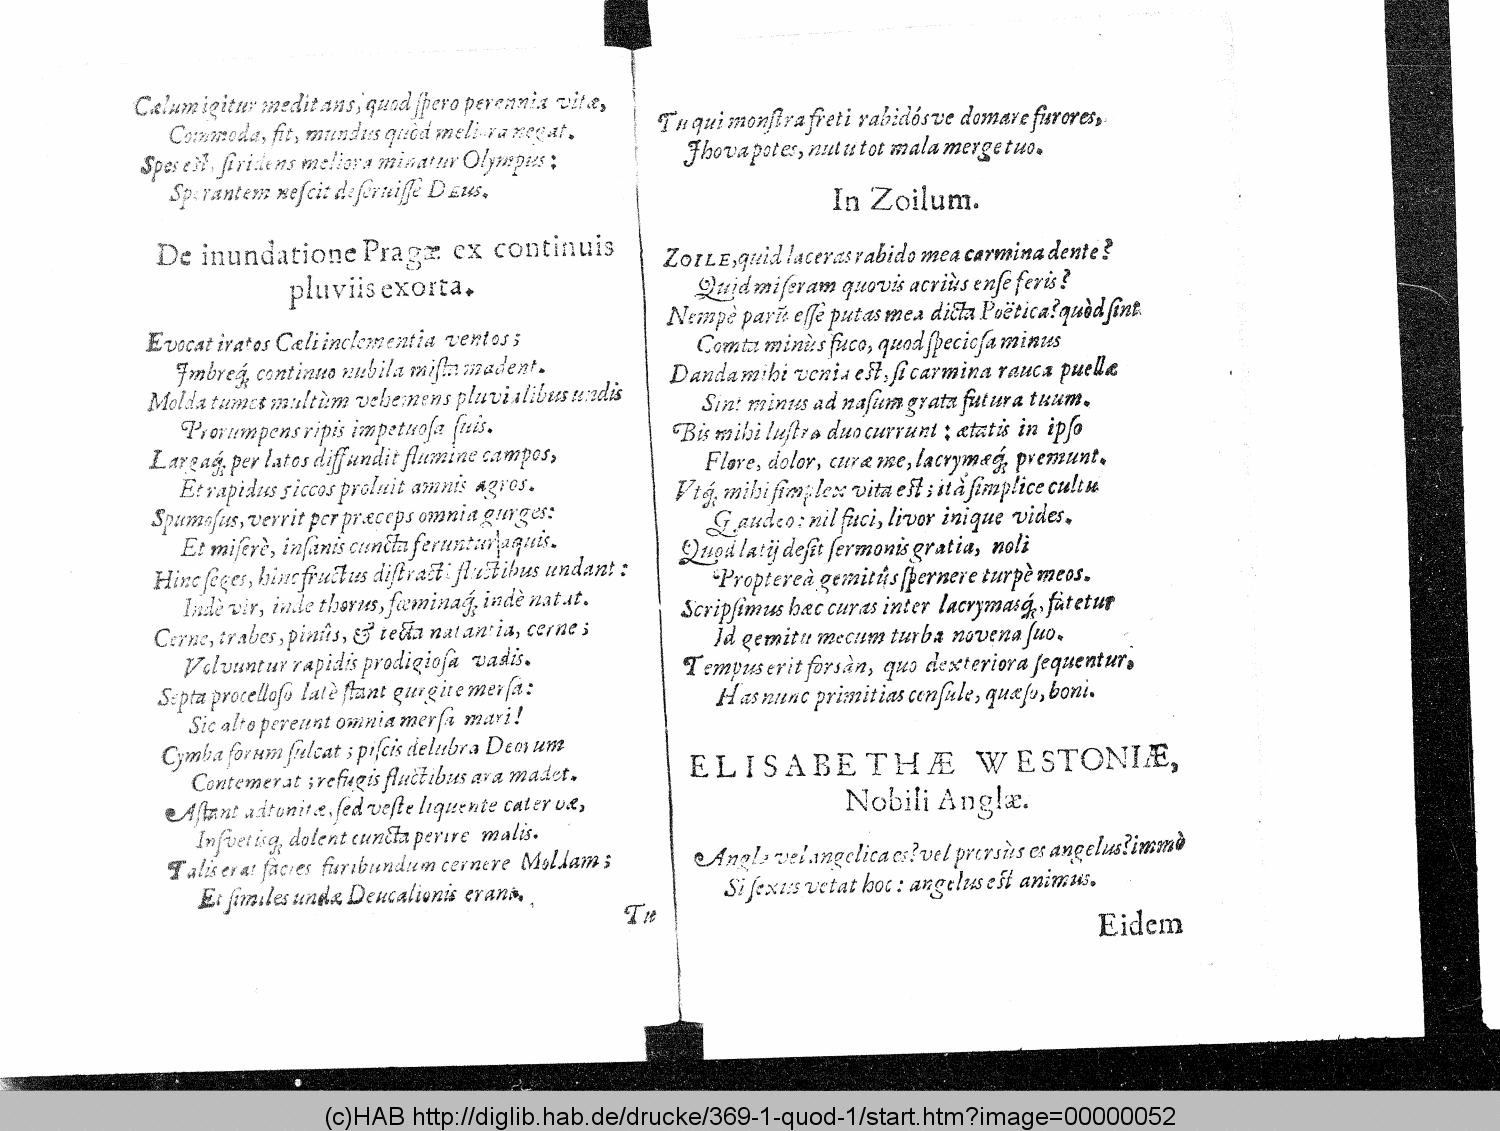 Cælum igitur meditans, quod ſpero perennia vitæ,
Commoda, fit, mundus quòd meliora negat.
Spes eſt, ſtridens meliora minatur Olympus:
Sperantem neſcit deſeruiſſe DEUS.
De inundatione Pragæ ex continuis
pluviis exorta.
Evocat iratos Cæli inclementia ventos;
Imbreq́; continuo nubila miſta madent.
Molda tumet multùm vehemens pluvialibus undis
Prorumpens ripis impetuoſa ſuis.
Largaq́; per latos diffundit flumine campos,
Et rapidus ſiccos proluit amnis agros.
Spumoſus, verrit per præceps omnia gurges:
Et miſerè, inſanis cuncta feruntur aquis.
Hinc ſeges, hinc fructus diſtracti fluctibus undant:
Indè vir, inde thorus, fœminaq́; indè natat.
Cerne, trabes, pinûs, & tecta natantia, cerne;
Volvuntur rapidis prodigioſa vadis.
Septa procelloſo latè ſtant gurgite merſa:
Sic alto pereunt omnia merſa mari!
Cymba forum ſulcat; piſcis delubra Deorum
Contemerat; refugis fluctibus ara madet.
Aſtant adtonitæ, ſed veſte liquente catervæ,
Inſvetisq́; dolent cuncta perire malis.
Talis erat facies furibundum cernere Moldam;
Et ſimiles undæ Deucalionis erant.
Tu
Tu qui monſtra freti rabidósve domare furores,
Jhova potes, nutu tot mala merge tuo.
In Zoilum.
ZOILE, quid laceras rabido mea carmina dente?
Quid miſeram quovis acriùs enſe feris?
Nempè parũ eſſe putas mea dicta Poëtica? quòd ſint
Comta minùs fuco, quod ſpecioſa minus
Danda mihi venia eſt, ſi carmina rauca puellæ
Sint minus ad naſum grata futura tuum.
Bis mihi luſtra duo currunt; ætatis in ipſo
Flore, dolor, curæ me, lacrymæq́; premunt.
Vtq́; mihi ſimplex vita eſt; ità ſimplice cultu
Gaudeo: nil fuci, livor inique vides.
Quod latij deſit ſermonis gratia, noli
Proptereà gemitûs ſpernere turpè meos.
Scripſimus hæc curas inter lacrymasq́;, fatetur
Id gemitu mecum turba novena ſuo.
Tempus erit forsàn, quo dexteriora ſequentur,
Has nunc primitias cenſule, quæſo, boni.
ELISABETHÆ WESTONIÆ,
Nobili Anglæ.
Angla vel angelica es? vel prorsùs es angelus? immò
Si ſexus vetat hoc: angelus eſt animus.
Eidem
(c)HAB http://diglib.hab.de/drucke/369-1-quod-1/start.htm?image=00000052